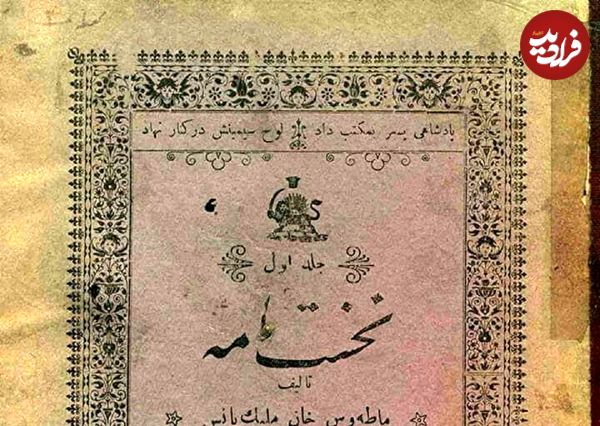 فرادید
پادشاهی پسر بمکتب داد لوح سیمینش درکنار نهاد
جلد اول
نخستنامه
تالیف
ماطه وس خان ملیك یانس